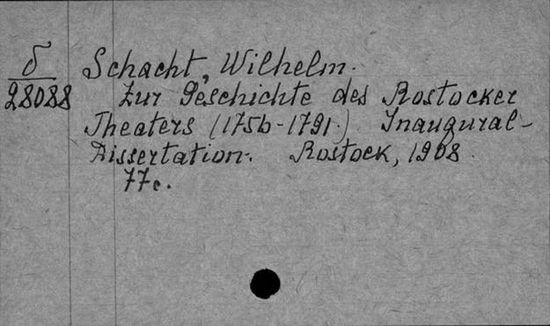 δ
28088
Schacht, Wilhelm.
Zur Geschichte des Rostocker
Theaters (1756-1791.) Inaugural-
Dissertation. Rostock, 1908.
77c.